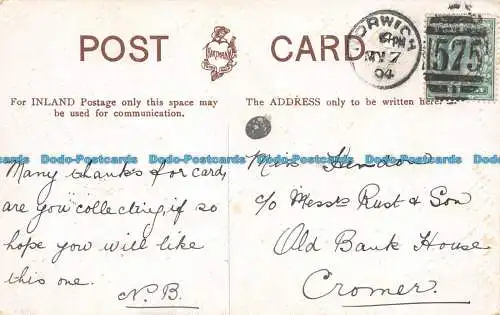 POST CARD.
HARTMANN
NORWICH
MY 7
04
575
For INLAND Postage only this space may
be used for communication.
The ADDRESS only to be written here.
Dodo-Postcards Dodo-Postcards Dodo-Postcards Dodo-Postcards Dodo-Postcards
Many thanks for card,
are you collecting, if so
hope you will like
this one.
N.B.
Miss
c/o Messrs Rust & Son
Old Bank House
Cromer.